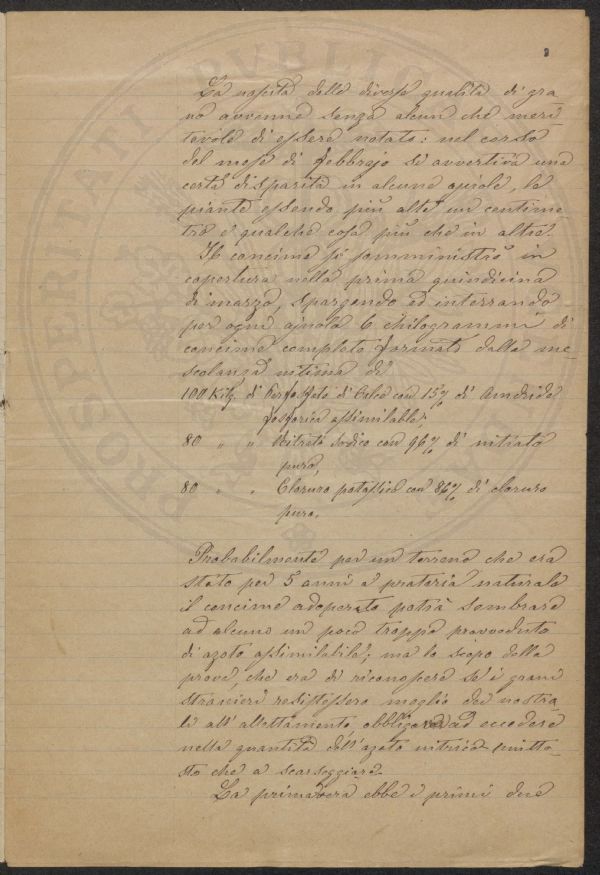 La nascita delle diverse qualità di gra
no avvenne senza alcun che meri
tevole di essere notato: nel corso
del mese di febbrajo si avvertiva una
certa disparità in alcune ajuole, le
piante essendo più alte un centime-
tro e qualche cosa più che in altre.
Il concime si somministrò in
copertura nella prima quindicina
di marzo, spargendo ed interrando
per ogni ajuola 6 chilogrammi di
concime completo formato dalla me-
scolanza intima di
100 Kilg. di Perfosfato di Calce con 15% di Anidride
fosforica assimilabile;
80 " " Nitrato sodico con 96% di nitrato
puro,
80 " " Cloruro potassico con 86% di cloruro
puro.
Probabilmente per un terreno che era
stato per 5 anni a prateria naturale
il concime adoperato potrà sembrare
ad alcuno un poco troppo provveduto
di azoto assimilabile; ma lo scopo della
prova, che era di riconoscere se i grani
stranieri resistessero meglio dei nostra
li all'allettamento, obbligava ad eccedere
nella quantità dell'azoto nitrico piutto-
sto che a scarseggiare.
La primavera ebbe i primi due
PROSPERITATI PUBLIC